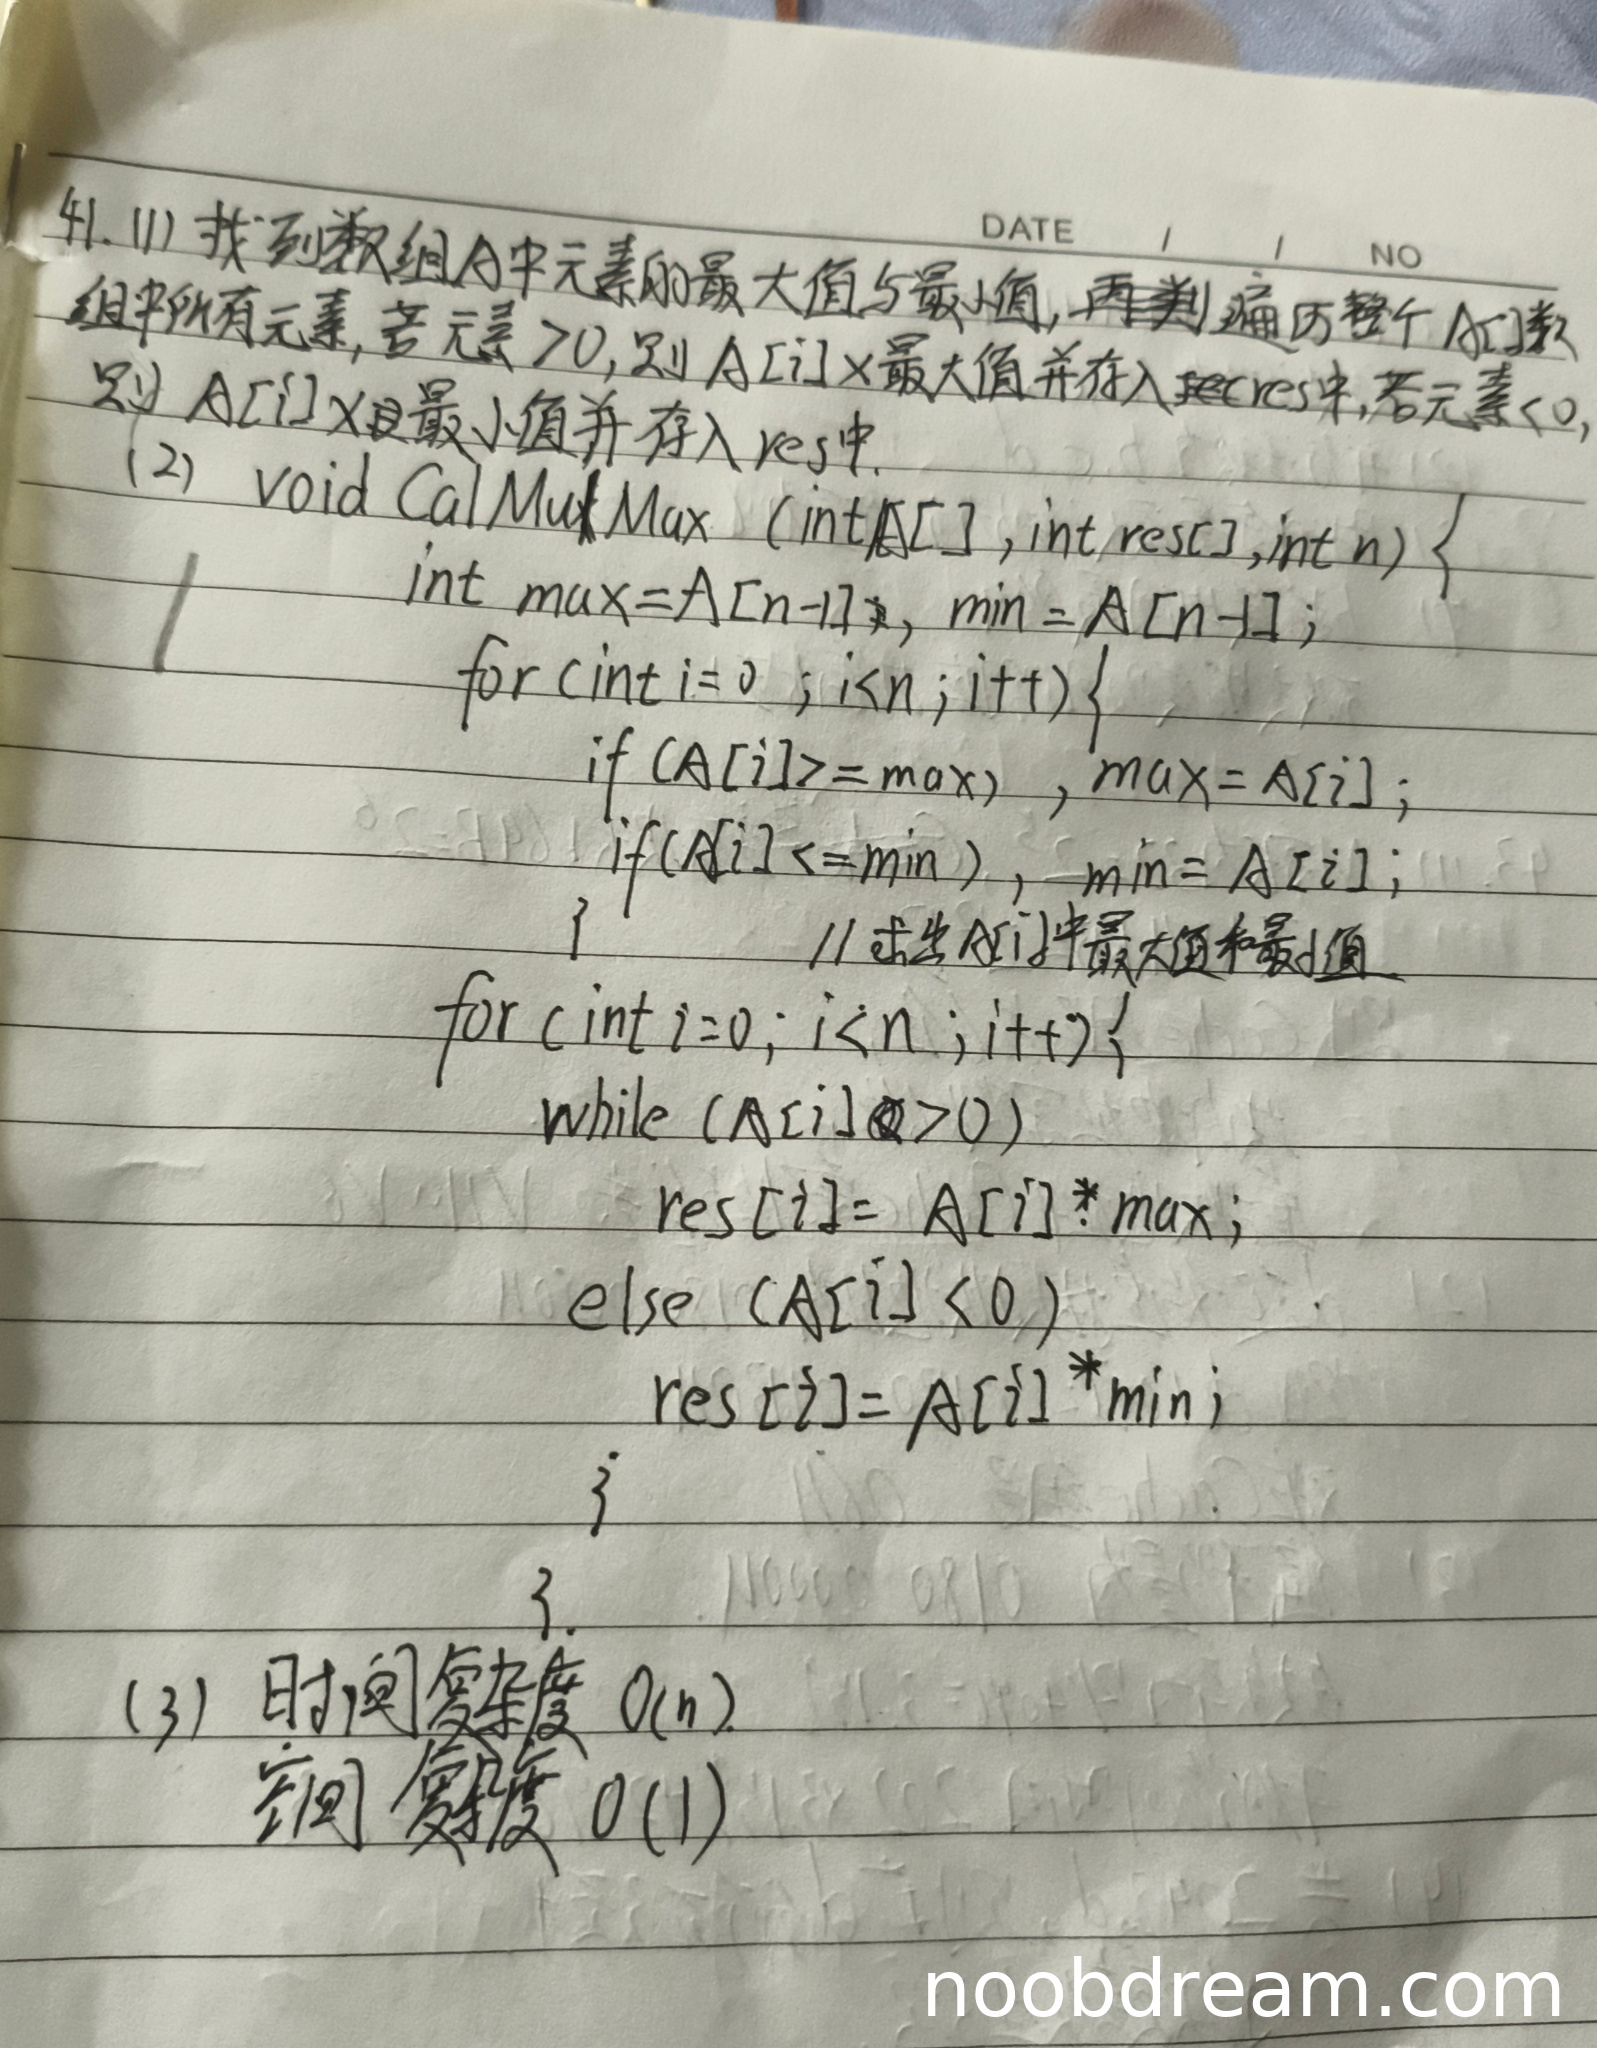 DATE / / NO
41. (1) 找到数组A中元素的最大值与最小值, 遍历整个A[]数
组中所有元素, 若元素>0, 则A[i]×最大值并存入res中, 若元素<0,
则A[i]×最小值并存入res中.
(2) void CalMulMax (int A[], int res[], int n) {
int max=A[n-1], min=A[n-1];
for (int i=0; i<n; i++) {
if (A[i]>=max), max=A[i];
if (A[i]<=min), min=A[i];
} //求出A[i]中最大值和最小值
for (int i=0; i<n; i++) {
while (A[i]>0)
res[i]= A[i]*max;
else (A[i]<0)
res[i]= A[i]*min;
}
}.
(3) 时间复杂度 O(n).
空间复杂度 O(1)
noobdream.com